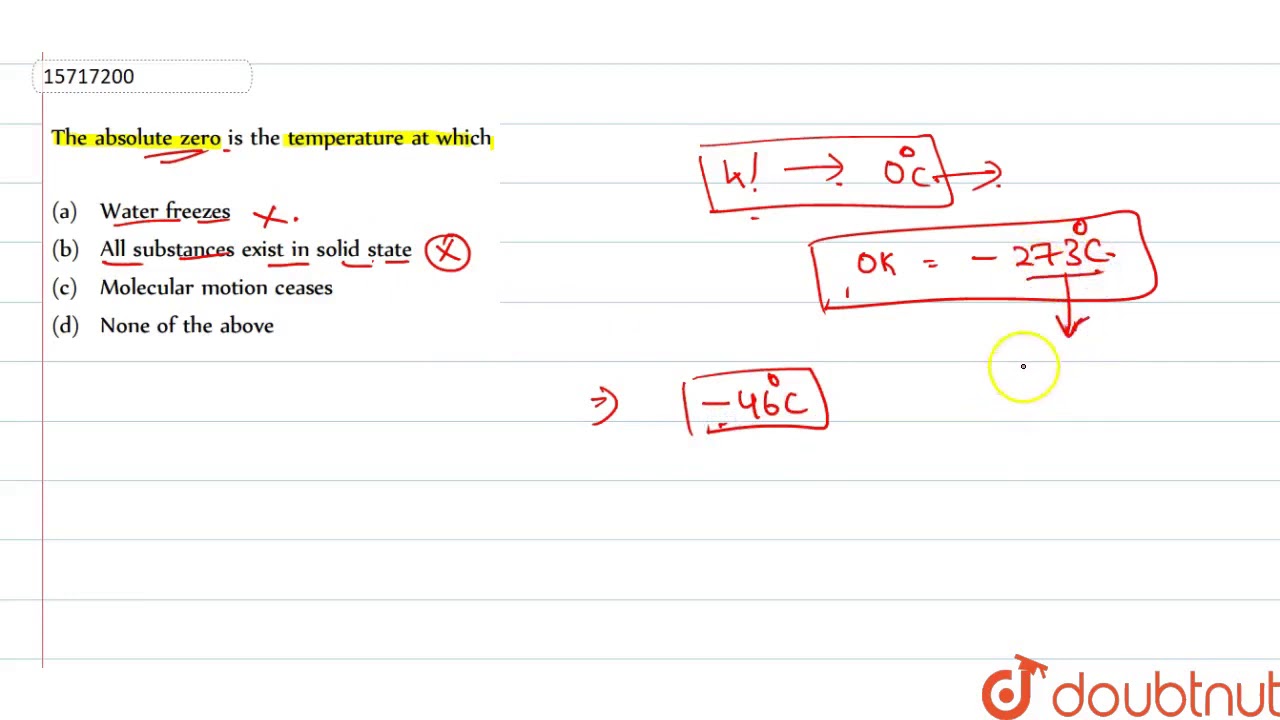 15717200
The absolute zero is the temperature at which
(a) Water freezes X.
(b) All substances exist in solid state X
(c) Molecular motion ceases
(d) None of the above
→ 0°C →
0K = - 273°C
⇒ -46°C
doubtnut